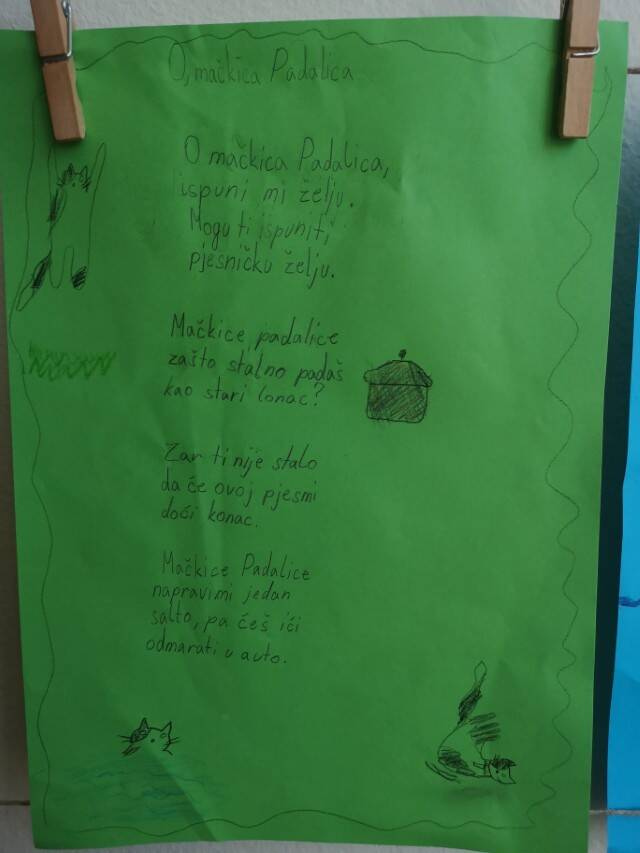 O, mačkica Padalica
O mačkica Padalica,
ispuni mi želju.
Mogu ti ispuniti,
pjesničku želju.
Mačkice padalice
zašto stalno padaš
kao stari lonac?
Zar ti nije stalo
da će ovoj pjesmi
doći konac.
Mačkice Padalice
napravi mi jedan
salto, pa ćeš ići
odmarati u auto.